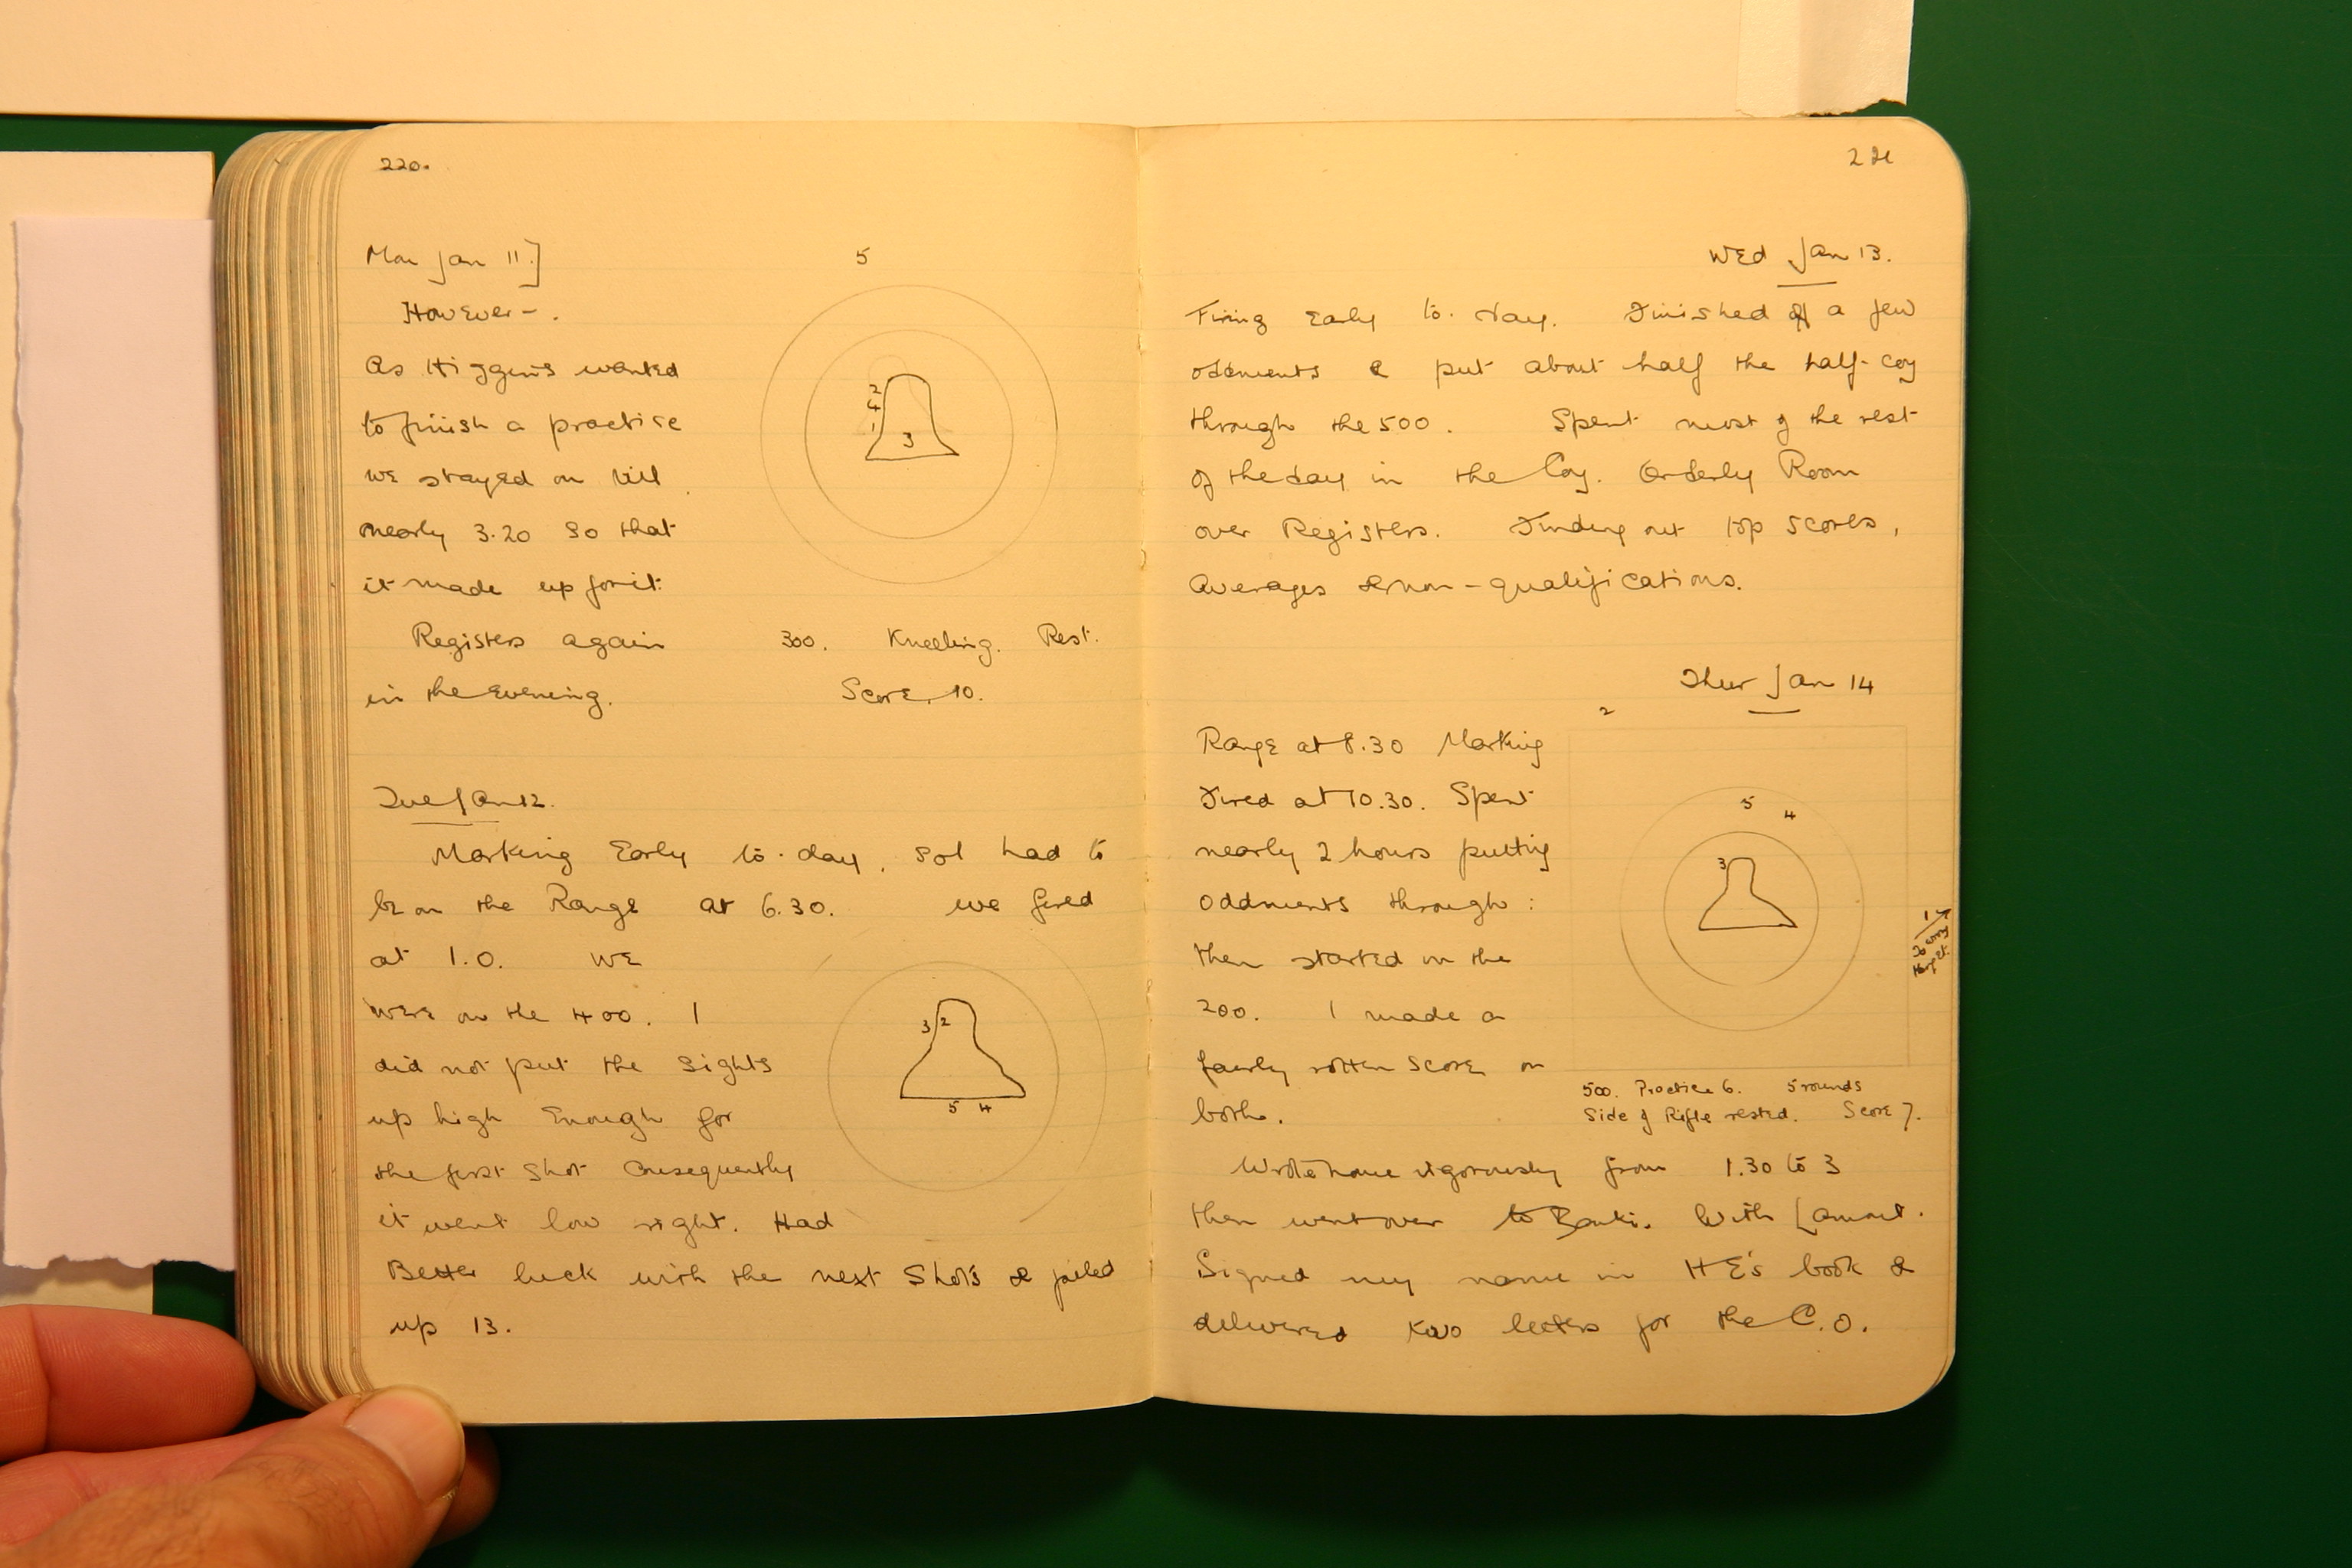 220.
Mon Jan 11.]
However - .
As Higgins wanted
to finish a practise
we stayed on till
nearly 3.20 so that
it made up for it.
Registers again
in the Evening.
5
2
4
1
3
300. Kneeling. Rest.
Score 10.
Tue Jan 12.
Marking Early to-day, so I had to
be on the Range at 6.30. We fired
at 1.0. We
were on the 400. I
did not put the sights
up high Enough for
the first shot consequently
it went low right. Had
Better luck with the next shots & piled
up 13.
3 2
5 4
221
Wed Jan 13.
Firing Early to-day. Finished off a few
oddments & put about half the half-coy
through the 500. Spent most of the rest
of the day in the Coy. Orderly Room
over Registers. Finding out top scores,
Averages & non-qualifications.
Thur Jan 14
Range at 8.30 Marking
Fired at 10.30. Spent
nearly 2 hours putting
oddments through:
then started on the
200. I made a
fairly rotten score on
both.
2
5
4
3
1
500. Practice 6. 5 rounds
Side of Rifle rested. Score 7.
Wrote home vigorously from 1.30 to 3
then went over to Banki. With Lamout.
Signed my name in HE's book &
delivered two letters for the C.O.